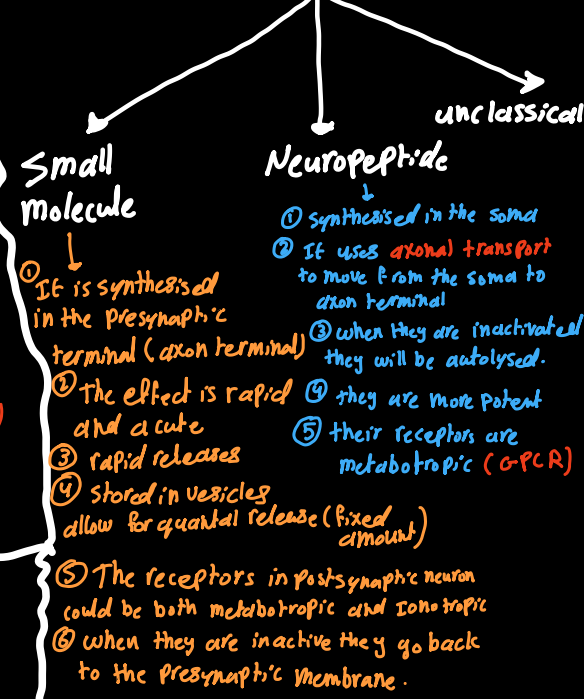 unclassical
Small
molecule
Neuropeptide
① It is synthesised
in the presynaptic
terminal (axon terminal)
② The effect is rapid
and acute
③ rapid releases
④ stored in vesicles
allow for quantal release (fixed
amount)
⑤ The receptors in postsynaptic neuron
could be both metabotropic and Ionotropic
⑥ when they are inactive they go back
to the presynaptic membrane.
① synthesised in the soma
② It uses axonal transport
to move from the soma to
axon terminal
③ when they are inactivated
they will be autolysed.
④ they are more potent
⑤ their receptors are
metabotropic (GPCR)